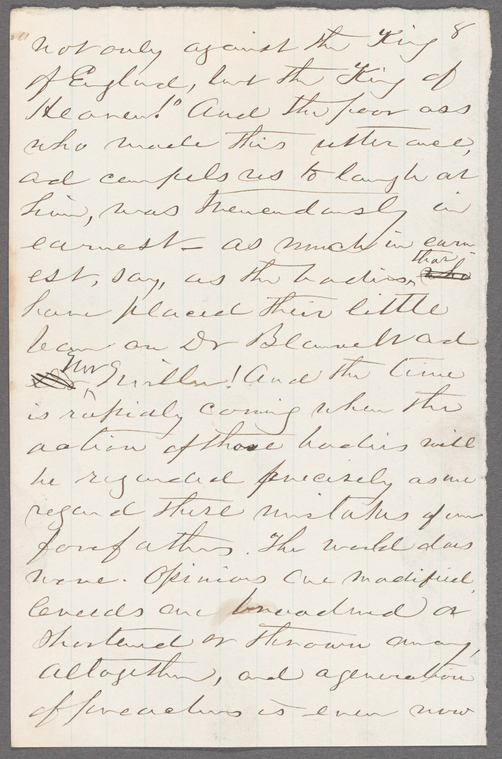 8
not only against the King
of England, but the King of
Heaven!" And the poor ass
who made this utterance,
and compels us to laugh at
him, was tremendously in
earnest – as much in earn
est, say, as the bodies that
have placed their little
ban on Dr Blauvelt and
Mr Miller! And the time
is rapidly coming when the
action of those bodies will
be regarded precisely as we
regard these mistakes of our
forefathers. The world does
move. Opinions are modified,
creeds are broadened or
shortened or thrown away
altogether, and a generation
of preachers is even now